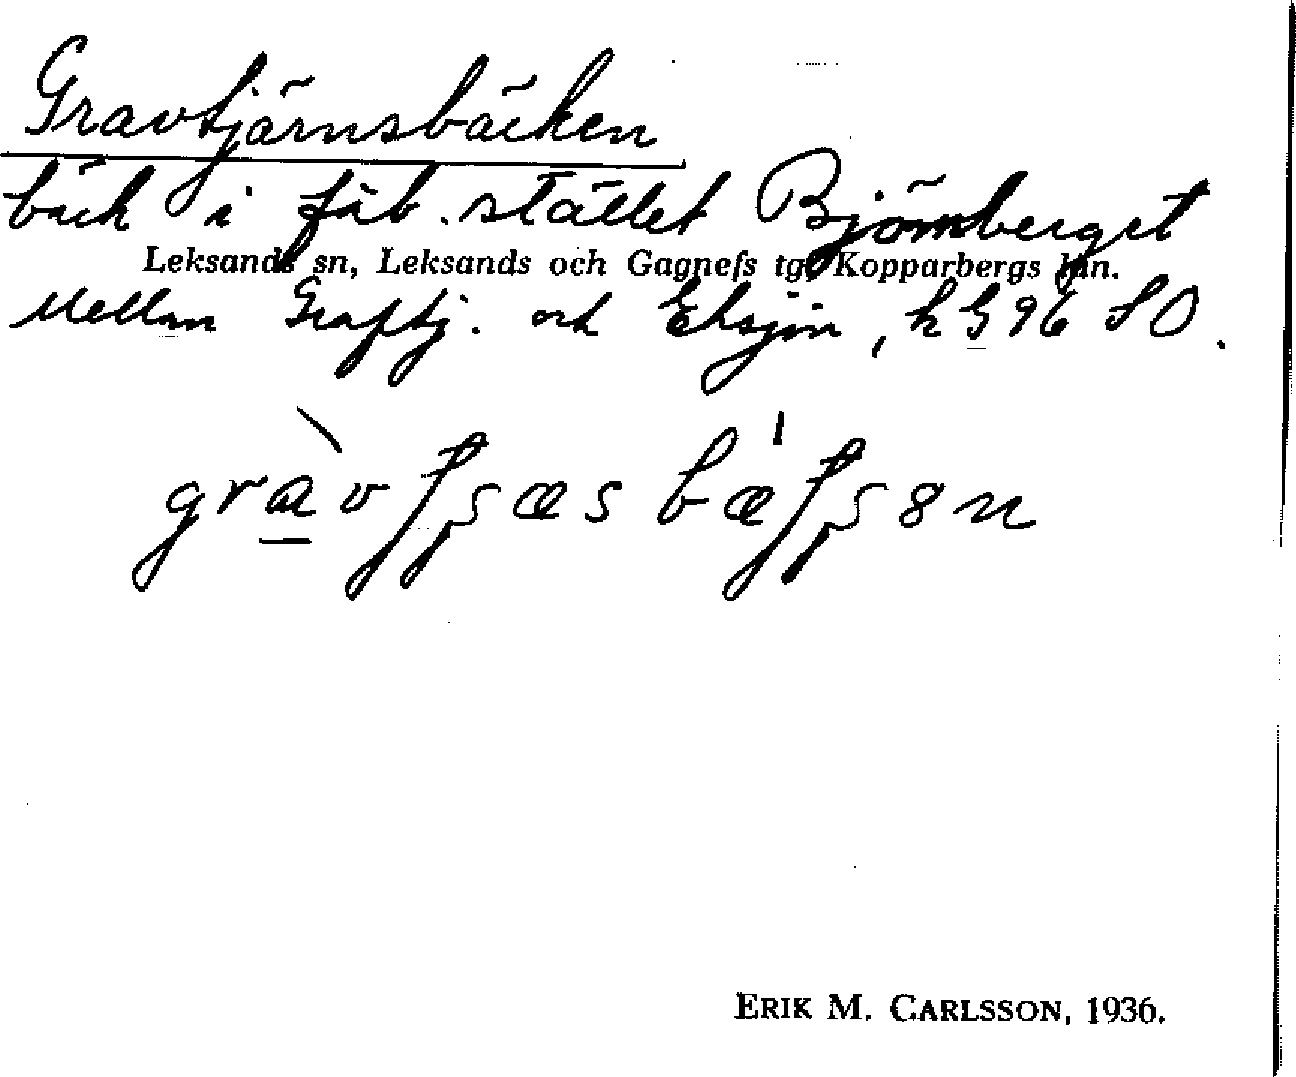 Gravtjärnsbäcken
bäck i fäb. stället Björnberget
Leksands sn, Leksands och Gagnefs tg, Kopparbergs län.
Mellan Graftj. och Eksjön, k G 96 SO.
ERIK M. CARLSSON, 1936.